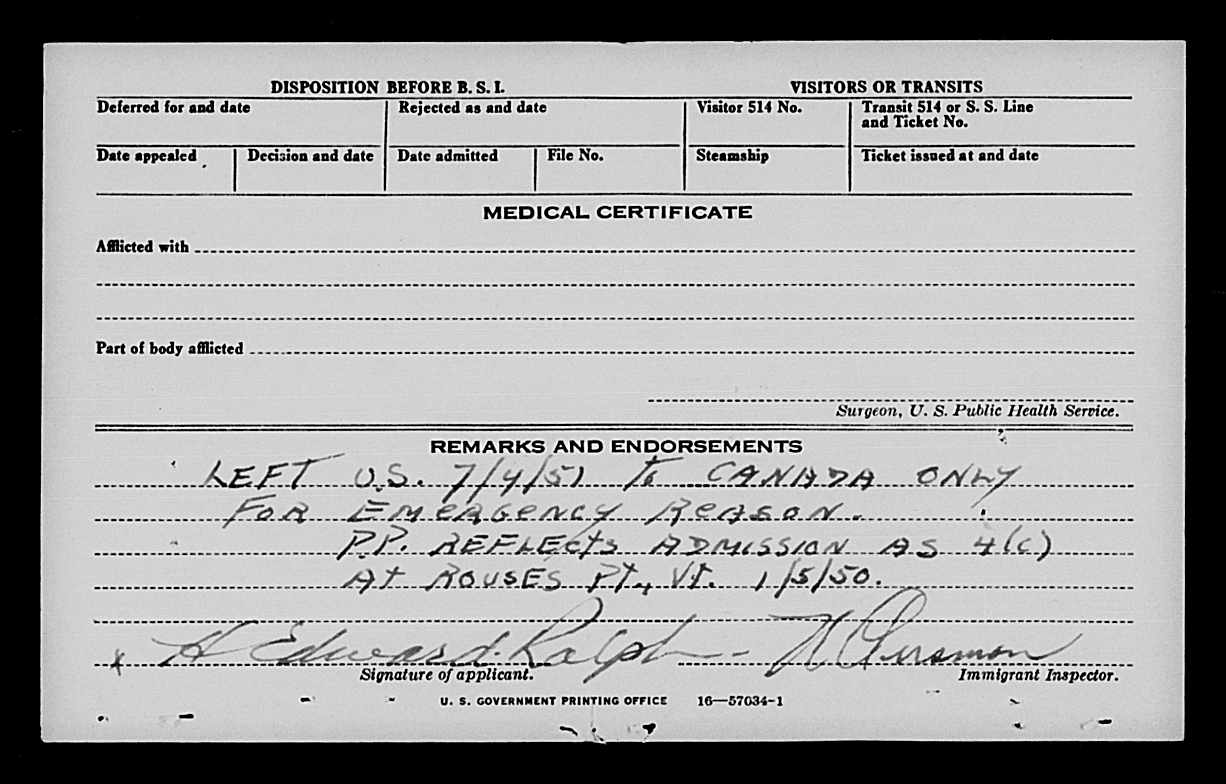 DISPOSITION BEFORE B. S. I.
VISITORS OR TRANSITS
Deferred for and date
Rejected as and date
Visitor 514 No.
Transit 514 or S. S. Line
and Ticket No.
Date appealed
Decision and date
Date admitted
File No.
Steamship
Ticket issued at and date
MEDICAL CERTIFICATE
Afflicted with
Part of body afflicted
Surgeon, U. S. Public Health Service.
REMARKS AND ENDORSEMENTS
LEFT U.S. 7/4/51 to CANADA ONLY
FOR EMERGENCY REASON.
P.P. REFLECTS ADMISSION AS 4(c)
At ROUSES Pt., Vt. 1/5/50.
x H Edward Ralph
Signature of applicant.
Immigrant Inspector.
U. S. GOVERNMENT PRINTING OFFICE 16—57034-1